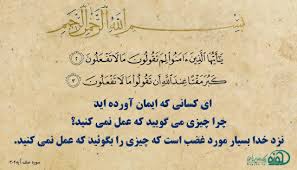 بسم الله الرحمن الرحیم
يَـٰٓأَيُّهَا ٱلَّذِينَ ءَامَنُوا۟ لِمَ تَقُولُونَ مَا لَا تَفْعَلُونَ ٢
كَبُرَ مَقْتًا عِندَ ٱللَّهِ أَن تَقُولُوا۟ مَا لَا تَفْعَلُونَ ٣
ای کسانی که ایمان آورده اید
چرا چیزی می گویید که عمل نمی کنید؟
نزد خدا بسیار مورد غضب است که چیزی را بگوئید که عمل نمی کنید.
سوره صف آیه ۲-۳